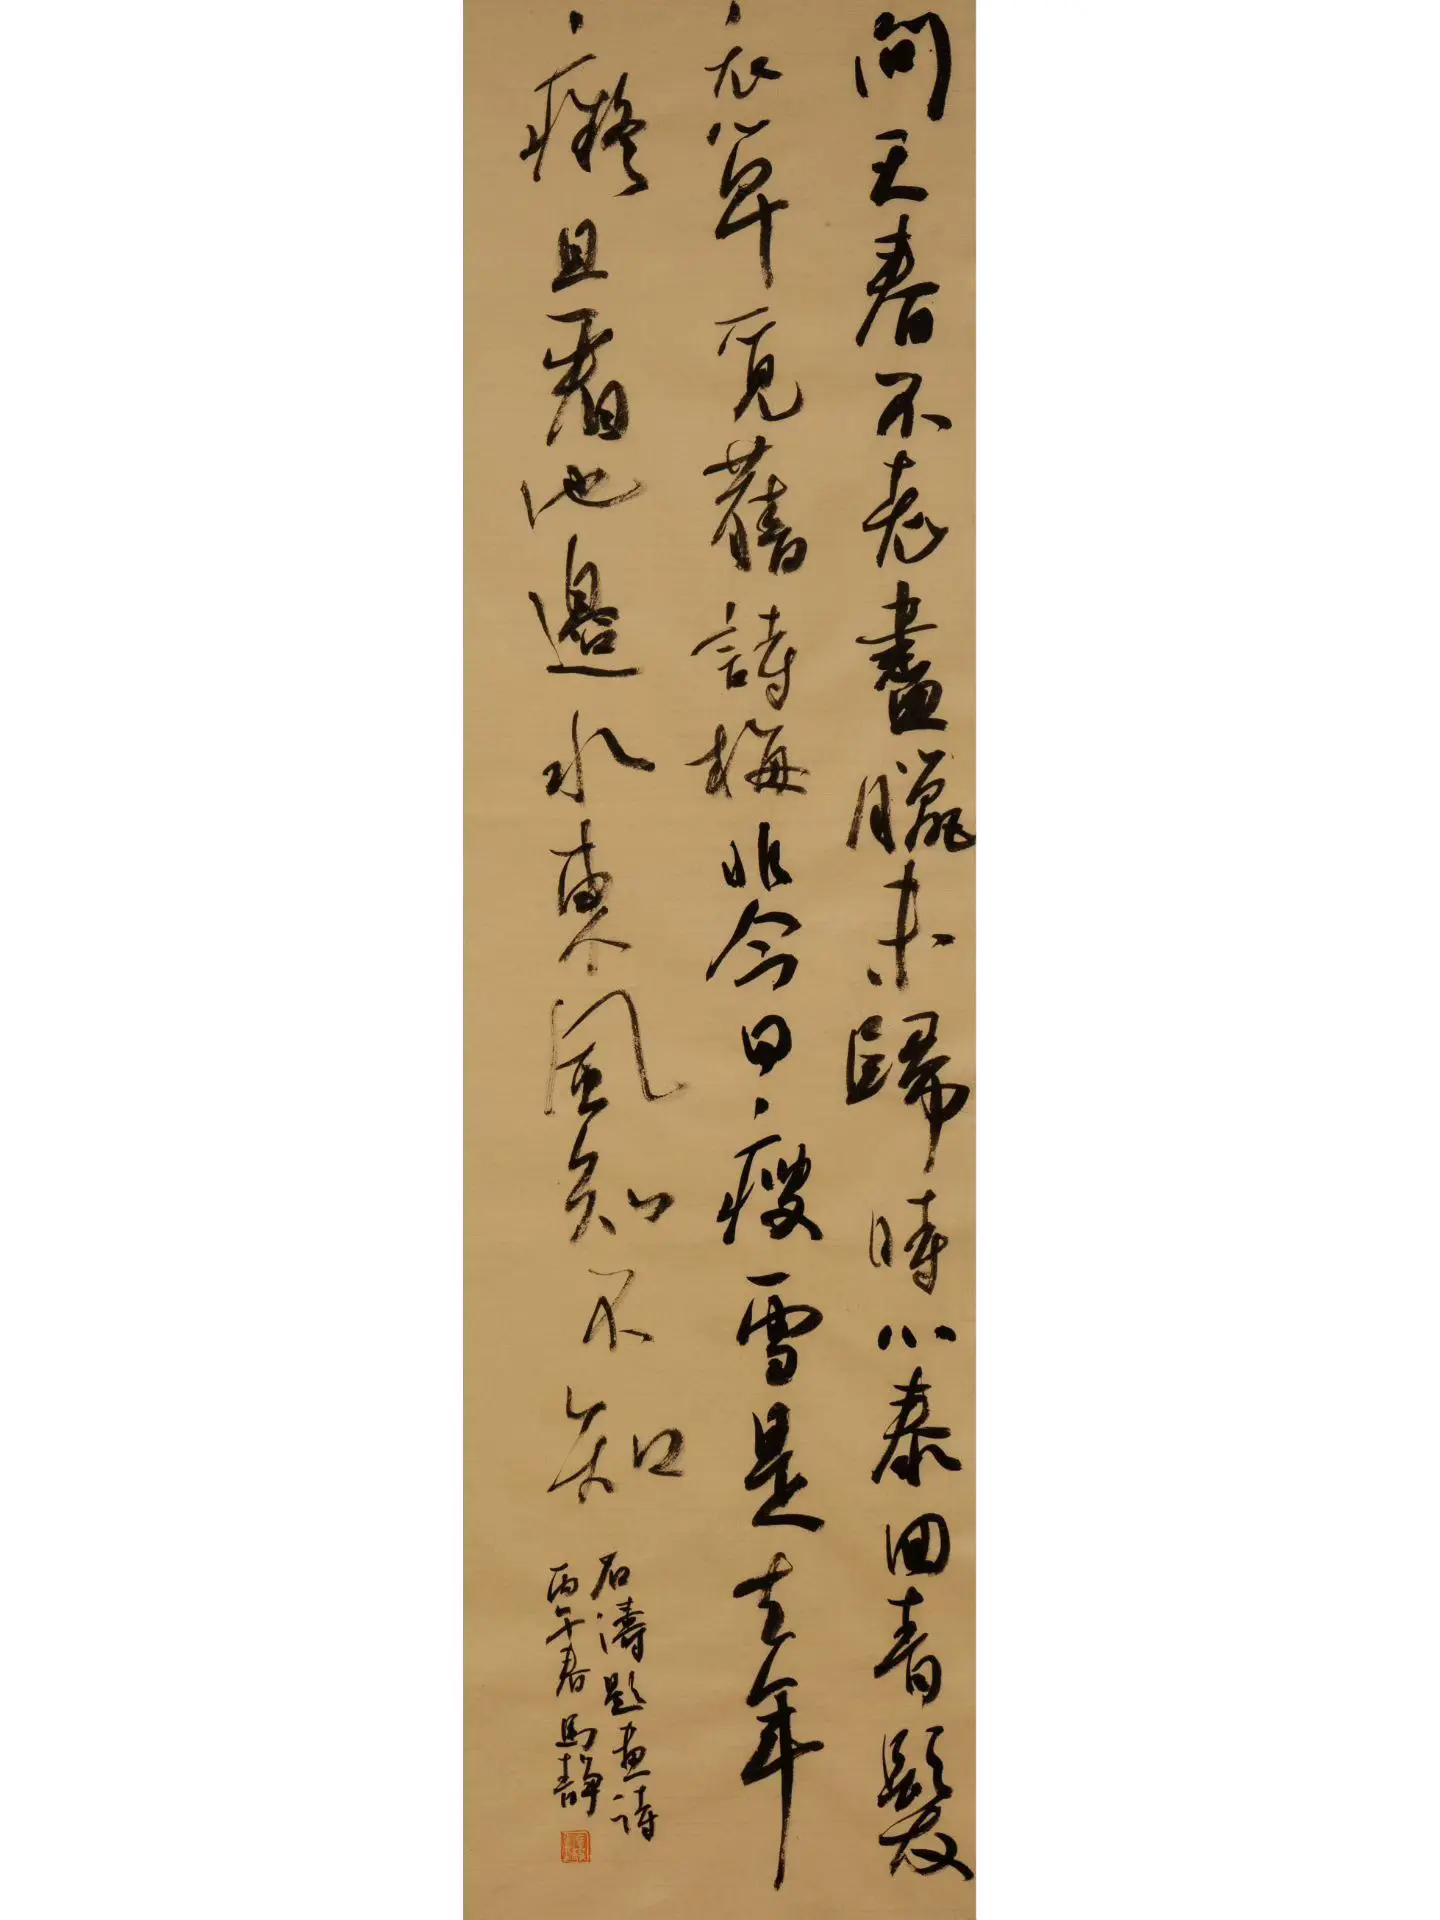 問天春不老盡臘未歸時小泰回青髮
衣單覓舊詩梅非今日瘦雪是去年
癡且看池邊水東風知不知
石濤題畫詩
丙午春馬靜